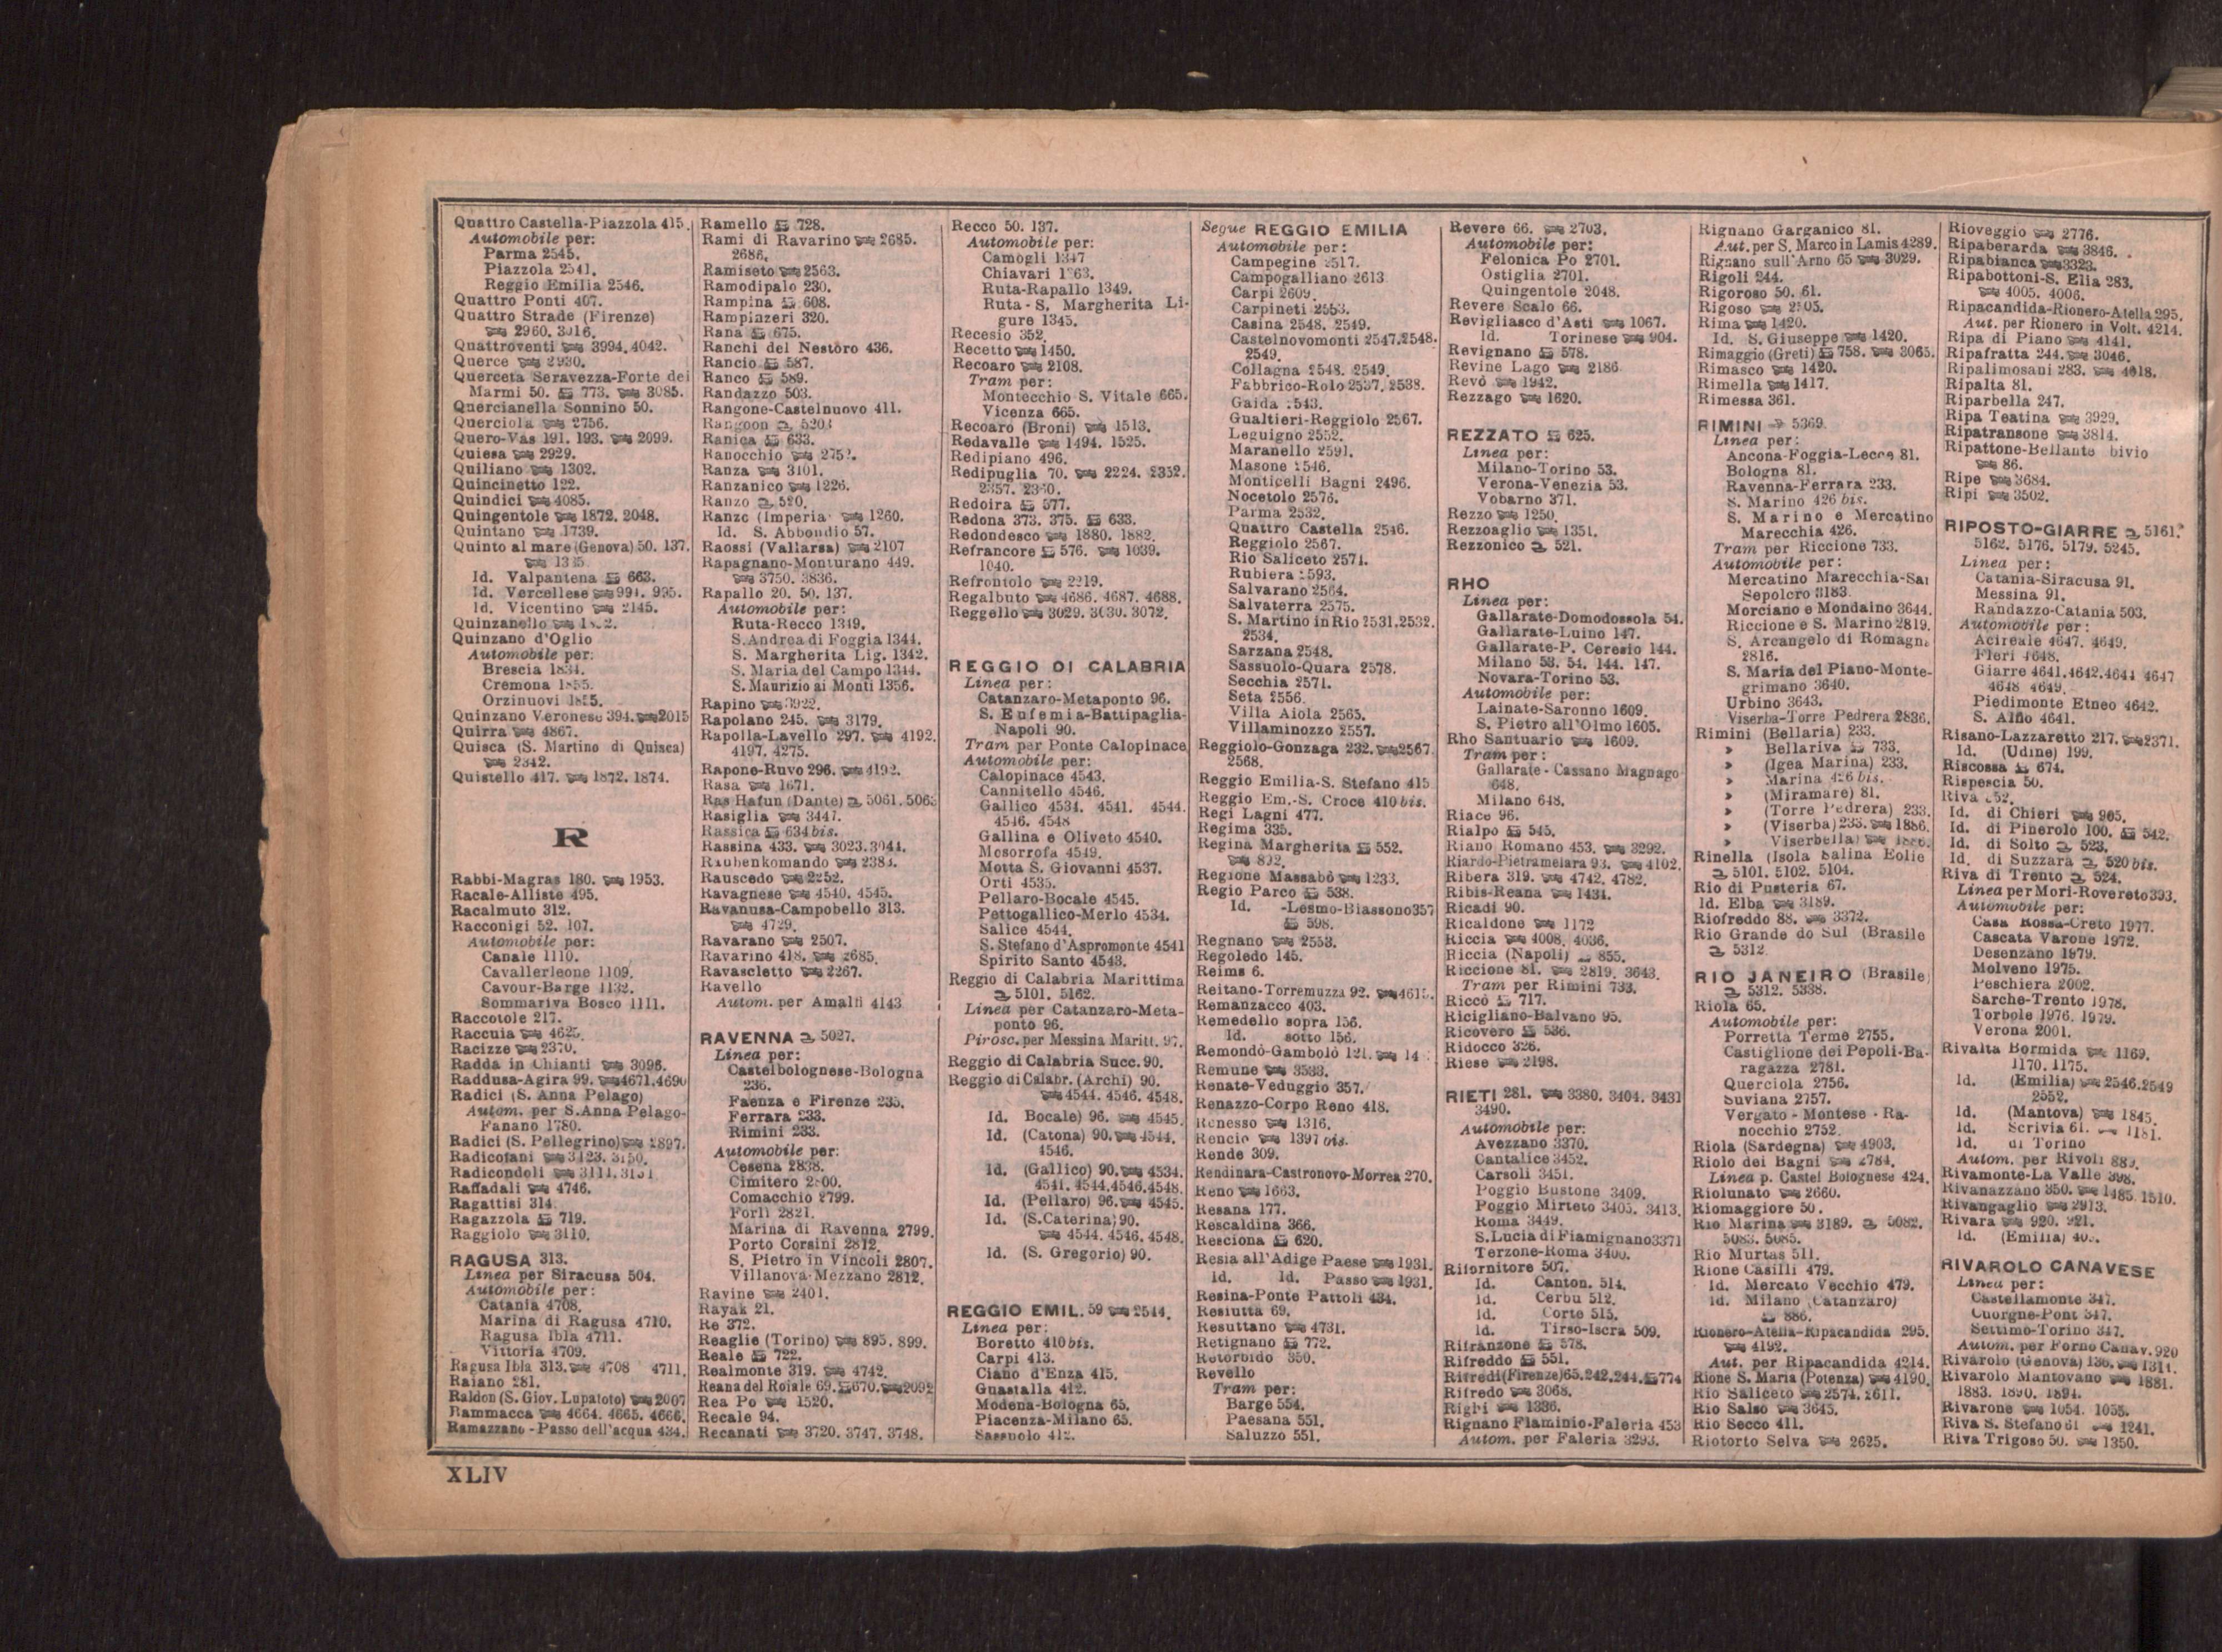 Quattro Castella-Piazzola 415.
Automobile per:
Parma 2545.
Piazzola 2541.
Reggio Emilia 2546.
Quattro Ponti 407.
Quattro Strade (Firenze)
2960. 3016.
Quattroventi 3994. 4042.
Querce 2930.
Querceta Seravezza-Forte dei
Marmi 50. 773. 3085.
Quercianella Sonnino 50.
Querciola 2756.
Quero-Vas 191. 193. 2099.
Quiesa 2929.
Quiliano 1302.
Quincinetto 122.
Quindici 4085.
Quingentole 1872. 2048.
Quintano 1739.
Quinto al mare (Genova) 50. 137.
Id. Valpantena 663.
Id. Vercellese 991. 995.
Id. Vicentino 2145.
Quinzanello
Quinzano d'Oglio
Automobile per:
Brescia 1834.
Cremona 1855.
Orzinuovi 1855.
Quinzano Veronese 394. 2015
Quirra 4867.
Quisca (S. Martino di Quisca)
2342.
Quistello 417. 1872. 1874.
R
Rabbi-Magras 180. 1953.
Racale-Alliste 495.
Racalmuto 312.
Racconigi 52. 107.
Automobile per:
Canale 1110.
Cavallerleone 1109.
Cavour-Barge 1132.
Sommariva Bosco 1111.
Raccotole 217.
Raccuia 4625.
Racizze 2370.
Radda in Chianti 3096.
Raddusa-Agira 99. 4671. 4690
Radici (S. Anna Pelago)
Autom. per S. Anna Pelago-
Fanano 1780.
Radici (S. Pellegrino) 2897.
Radicofani 3123. 3150.
Radicondoli 3111. 3151
Raffadali 4746.
Ragattisi 314.
Ragazzola 719.
Raggiolo 3110.
RAGUSA 313.
Linea per Siracusa 504.
Automobile per:
Catania 4708.
Marina di Ragusa 4710.
Ragusa Ibla 4711.
Vittoria 4709.
Ragusa Ibla 313. 4708 4711.
Raiano 281.
Raldon (S. Giov. Lupatoto) 2007
Rammacca 4664. 4665. 4666.
Ramazzano - Passo dell'acqua 434.
Ramello 728.
Rami di Ravarino 2685.
2686.
Ramiseto 2563.
Ramodipalo 230.
Rampina 608.
Rampinzeri 320.
Rana 675.
Ranchi del Nestoro 436.
Rancio 587.
Ranco 589.
Randazzo 503.
Rangone-Castelnuovo 411.
Rangoon 5203
Ranica 633.
Ranocchio
Ranza 3101.
Ranzanico 1226.
Ranzo 520.
Ranzo (Imperia) 1260.
Id. S. Abbondio 57.
Raossi (Vallarsa) 2107
Rapagnano-Monturano 449.
3750. 3836.
Rapallo 20. 50. 137.
Automobile per:
Ruta-Recco 1349.
S. Andrea di Foggia 1344.
S. Margherita Lig. 1342.
S. Maria del Campo 1344.
S. Maurizio ai Monti 1356.
Rapino 3922.
Rapolano 245. 3179.
Rapolla-Lavello 297. 4192.
4197. 4275.
Rapone-Ruvo 296. 4192.
Rasa 1671.
Ras Hafun (Dante) 5061. 5063
Rasiglia 3447.
Rassica 634 bis.
Rassina 433. 3023. 3044.
Raubenkomando 2383.
Rauscedo 2252.
Ravagnese 4540. 4545.
Ravanusa-Campobello 313.
4729.
Ravarano 2507.
Ravarino 418. 2685.
Ravascletto 2267.
Ravello
Autom. per Amalfi 4143
RAVENNA 5027.
Linea per:
Castelbolognese-Bologna
236.
Faenza e Firenze 235.
Ferrara 233.
Rimini 233.
Automobile per:
Cesena 2838.
Cimitero 2800.
Comacchio 2799.
Forlì 2821.
Marina di Ravenna 2799.
Porto Corsini 2812.
S. Pietro in Vincoli 2807.
Villanova-Mezzano 2812.
Ravine 2401.
Rayak 21.
Re 372.
Reaglie (Torino) 895. 899.
Reale 722.
Realmonte 319. 4742.
Reana del Roiale 69. 670. 2092
Rea Po 1520.
Recale 94.
Recanati 3720. 3747. 3748.
Recco 50. 137.
Automobile per:
Camogli 1347
Chiavari 1363.
Ruta-Rapallo 1349.
Ruta - S. Margherita Li-
gure 1345.
Recesio 352.
Recetto 1450.
Recoaro 2108.
Tram per:
Montecchio S. Vitale 665.
Vicenza 665.
Recoaro (Broni) 1513.
Redavalle 1494. 1525.
Redipiano 496.
Redipuglia 70. 2224. 2352.
2357. 2360.
Redoira 577.
Redona 373. 375. 633.
Redondesco 1880. 1882.
Refrancore 576. 1039.
1040.
Refrontolo 2219.
Regalbuto 4686. 4687. 4688.
Reggello 3029. 3030. 3072.
REGGIO DI CALABRIA
Linea per:
Catanzaro-Metaponto 96.
S. Eufemia-Battipaglia-
Napoli 90.
Tram per Ponte Calopinace
Automobile per:
Calopinace 4543.
Cannitello 4546.
Gallico 4534. 4541. 4544.
4546. 4548
Gallina e Oliveto 4540.
Mosorrofa 4549.
Motta S. Giovanni 4537.
Orti 4535.
Pellaro-Bocale 4545.
Pettogallico-Merlo 4534.
Salice 4544.
S. Stefano d'Aspromonte 4541
Spirito Santo 4543.
Reggio di Calabria Marittima
5101. 5162.
Linea per Catanzaro-Meta-
ponto 96.
Pirosc. per Messina Maritt. 97.
Reggio di Calabria Succ. 90.
Reggio di Calabr. (Archi) 90.
4544. 4546. 4548.
Id. Bocale) 96. 4545.
Id. (Catona) 90. 4544.
4546.
Id. (Gallico) 90. 4534.
4541. 4544. 4546. 4548.
Id. (Pellaro) 96. 4545.
Id. (S. Caterina) 90.
4544. 4546. 4548.
Id. (S. Gregorio) 90.
REGGIO EMIL. 59 2544.
Linea per:
Boretto 410 bis.
Carpi 413.
Ciano d'Enza 415.
Guastalla 412.
Modena-Bologna 65.
Piacenza-Milano 65.
Sassuolo 412.
Segue REGGIO EMILIA
Automobile per:
Campegine 2517.
Campogalliano 2613
Carpi 2609.
Carpineti 2553.
Casina 2548. 2549.
Castelnovomonti 2547. 2548.
2549.
Collagna 2548. 2549.
Fabbrico-Rolo 2537. 2538.
Gaida 2543.
Gualtieri-Reggiolo 2567.
Leguigno 2552.
Maranello 2591.
Masone 2546.
Monticelli Bagni 2496.
Nocetolo 2576.
Parma 2532.
Quattro Castella 2546.
Reggiolo 2567.
Rio Saliceto 2571.
Rubiera 2593.
Salvarano 2564.
Salvaterra 2575.
S. Martino in Rio 2531. 2532.
2534.
Sarzana 2548.
Sassuolo-Quara 2578.
Secchia 2571.
Seta 2556.
Villa Aiola 2565.
Villaminozzo 2557.
Reggiolo-Gonzaga 232. 2567.
2568.
Reggio Emilia-S. Stefano 415
Reggio Em.-S. Croce 410 bis.
Regi Lagni 477.
Regima 335.
Regina Margherita 552.
802.
Regione Massabò 1233.
Regio Parco 538.
Id. -Lesmo-Biassono 357
598.
Regnano 2553.
Regoledo 145.
Reims 6.
Reitano-Torremuzza 92. 4615.
Remanzacco 403.
Remedello sopra 156.
Id. sotto 156.
Remondò-Gambolò 121.
Remune 3533.
Renate-Veduggio 357.
Renazzo-Corpo Reno 418.
Renesso 1316.
Rencio 1397 bis.
Rende 309.
Rendinara-Castronovo-Morrea 270.
Reno 1663.
Resana 177.
Rescaldina 366.
Resciona 620.
Resia all'Adige Paese 1931.
Id. Id. Passo 1931.
Resina-Ponte Pattoli 434.
Resiutta 69.
Resuttano 4731.
Retignano 772.
Retorbido 350.
Revello
Tram per:
Barge 554.
Paesana 551.
Saluzzo 551.
Revere 66. 2703.
Automobile per:
Felonica Po 2701.
Ostiglia 2701.
Quingentole 2048.
Revere Scalo 66.
Revigliasco d'Asti 1067.
Id. Torinese 904.
Revignano 578.
Revine Lago 2186
Revò 1942.
Rezzago 1620.
REZZATO 625.
Linea per:
Milano-Torino 53.
Verona-Venezia 53.
Vobarno 371.
Rezzo 1250.
Rezzoaglio 1351.
Rezzonico 521.
RHO
Linea per:
Gallarate-Domodossola 54.
Gallarate-Luino 147.
Gallarate-P. Ceresio 144.
Milano 53. 54. 144. 147.
Novara-Torino 53.
Automobile per:
Lainate-Saronno 1609.
S. Pietro all'Olmo 1605.
Rho Santuario 1609.
Tram per:
Gallarate - Cassano Magnago
648.
Milano 648.
Riace 96.
Rialpo 545.
Riano Romano 453. 3292.
Riardo-Pietramelara 93. 4102.
Ribera 319. 4742. 4782.
Ribis-Reana 1434.
Ricadi 90.
Ricaldone 1172
Riccia 4008. 4036.
Riccia (Napoli) 855.
Riccione 81. 2819. 3643.
Tram per Rimini 733.
Riccò 717.
Ricigliano-Balvano 95.
Ricovero 536.
Ridocco 326.
Riese 2198.
RIETI 281. 3380. 3404. 3431
3490.
Automobile per:
Avezzano 3370.
Cantalice 3452.
Carsoli 3451.
Poggio Bustone 3409.
Poggio Mirteto 3405. 3413.
Roma 3449.
S. Lucia di Fiamignano 3371
Terzone-Roma 3400.
Rifornitore 507.
Id. Canton. 514.
Id. Cerbu 512.
Id. Corte 515.
Id. Tirso-Iscra 509.
Rifranzone 578.
Rifreddo 551.
Rifredi (Firenze) 65. 242. 244. 774
Rifredo 3068.
Righi 1336.
Rignano Flaminio-Faleria 453
Autom. per Faleria 3293.
Rignano Garganico 81.
Aut. per S. Marco in Lamis 4289.
Rignano sull'Arno 65 3029.
Rigoli 244.
Rigoroso 50. 61.
Rigoso 2505.
Rima 1420.
Id. S. Giuseppe 1420.
Rimaggio (Greti) 758. 3065.
Rimasco 1420.
Rimella 1417.
Rimessa 361.
RIMINI 5369.
Linea per:
Ancona-Foggia-Lecce 81.
Bologna 81.
Ravenna-Ferrara 233.
S. Marino 426 bis.
S. Marino e Mercatino
Marecchia 426.
Tram per Riccione 733.
Automobile per:
Mercatino Marecchia-San
Sepolcro 3183.
Morciano e Mondaino 3644.
Riccione e S. Marino 2819.
S. Arcangelo di Romagna
2816.
S. Maria del Piano-Monte-
grimano 3640.
Urbino 3643.
Viserba-Torre Pedrera 2836.
Rimini (Bellaria) 233.
» Bellariva 733.
» (Igea Marina) 233.
» Marina 426 bis.
» (Miramare) 81.
» (Torre Pedrera) 233.
» (Viserba) 233. 1886.
» Viserbella) 1886.
Rinella (Isola Salina Eolie
5101. 5102. 5104.
Rio di Pusteria 67.
Id. Elba 3189.
Riofreddo 88. 3372.
Rio Grande do Sul (Brasile
5312
RIO JANEIRO (Brasile)
5312. 5338.
Riola 65.
Automobile per:
Porretta Terme 2755.
Castiglione dei Pepoli-Ba-
ragazza 2781.
Querciola 2756.
Suviana 2757.
Vergato - Montese - Ra-
nocchio 2752.
Riola (Sardegna) 4903.
Riolo dei Bagni 2784.
Linea p. Castel Bolognese 424.
Riolunato 2660.
Riomaggiore 50.
Rio Marina 3189. 5082.
5083. 5085.
Rio Murtas 511.
Rione Casilli 479.
Id. Mercato Vecchio 479.
Id. Milano (Catanzaro)
886.
Rionero-Atella-Ripacandida 295.
4192.
Aut. per Ripacandida 4214.
Rione S. Maria (Potenza) 4190.
Rio Saliceto 2574. 2611.
Rio Salso 3645.
Rio Secco 411.
Riotorto Selva 2625.
Rioveggio 2776.
Ripaberarda 3846.
Ripabianca 3323.
Ripabottoni-S. Elia 283.
4005. 4006.
Ripacandida-Rionero-Atella 295.
Aut. per Rionero in Volt. 4214.
Ripa di Piano 4141.
Ripafratta 244. 3046.
Ripalimosani 283. 4018.
Ripalta 81.
Riparbella 247.
Ripa Teatina 3929.
Ripatransone 3814.
Ripattone-Bellante bivio
86.
Ripe 3684.
Ripi 3502.
RIPOSTO-GIARRE 5161.
5162. 5176. 5179. 5245.
Linea per:
Catania-Siracusa 91.
Messina 91.
Randazzo-Catania 503.
Automobile per:
Acireale 4647. 4649.
Fleri 4648.
Giarre 4641. 4642. 4644 4647
4648 4649.
Piedimonte Etneo 4642.
S. Alfio 4641.
Risano-Lazzaretto 217. 2371.
Id. (Udine) 199.
Riscossa 674.
Rispescia 50.
Riva
Id. di Chieri 905.
Id. di Pinerolo 100. 542.
Id. di Solto 523.
Id. di Suzzara 520 bis.
Riva di Trento 524.
Linea per Mori-Rovereto 393.
Automobile per:
Casa Rossa-Creto 1977.
Cascata Varone 1972.
Desenzano 1979.
Molveno 1975.
Peschiera 2002.
Sarche-Trento 1978.
Torbole 1976. 1979.
Verona 2001.
Rivalta Bormida 1169.
1170. 1175.
Id. (Emilia) 2546. 2549
2552.
Id. (Mantova) 1845.
Id. Scrivia 61. 1181.
Id. di Torino
Autom. per Rivoli 889.
Rivamonte-La Valle 398.
Rivanazzano 350. 1485. 1510.
Rivangaglio 2913.
Rivara 920. 921.
Id. (Emilia)
RIVAROLO CANAVESE
Linea per:
Castellamonte 347.
Cuorgnè-Pont 347.
Settimo-Torino 347.
Autom. per Forno Canav. 920
Rivarolo (Genova) 136. 1311.
Rivarolo Mantovano 1881.
1883. 1890. 1894.
Rivarone 1054. 1055.
Riva S. Stefano 61 1241.
Riva Trigoso 50. 1350.
XLIV